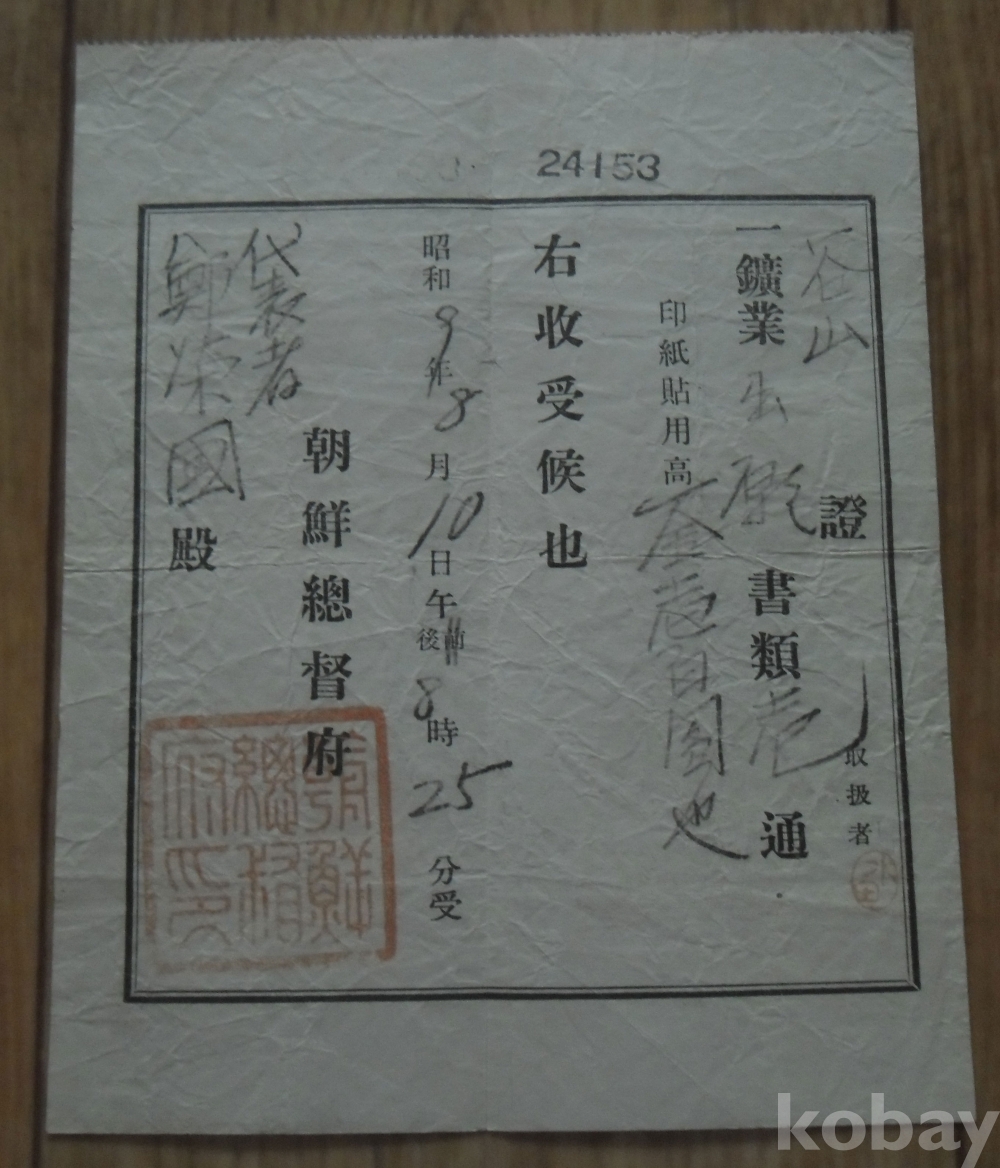 24153
谷山
證
取扱者
一鑛業出願書類壱通
印紙貼用高
金壱百圓也
右收受候也
昭和9年8月10日午前後8時25分受
朝鮮總督府
代表者
鄭榮國殿
朝鮮總督府印
kobay